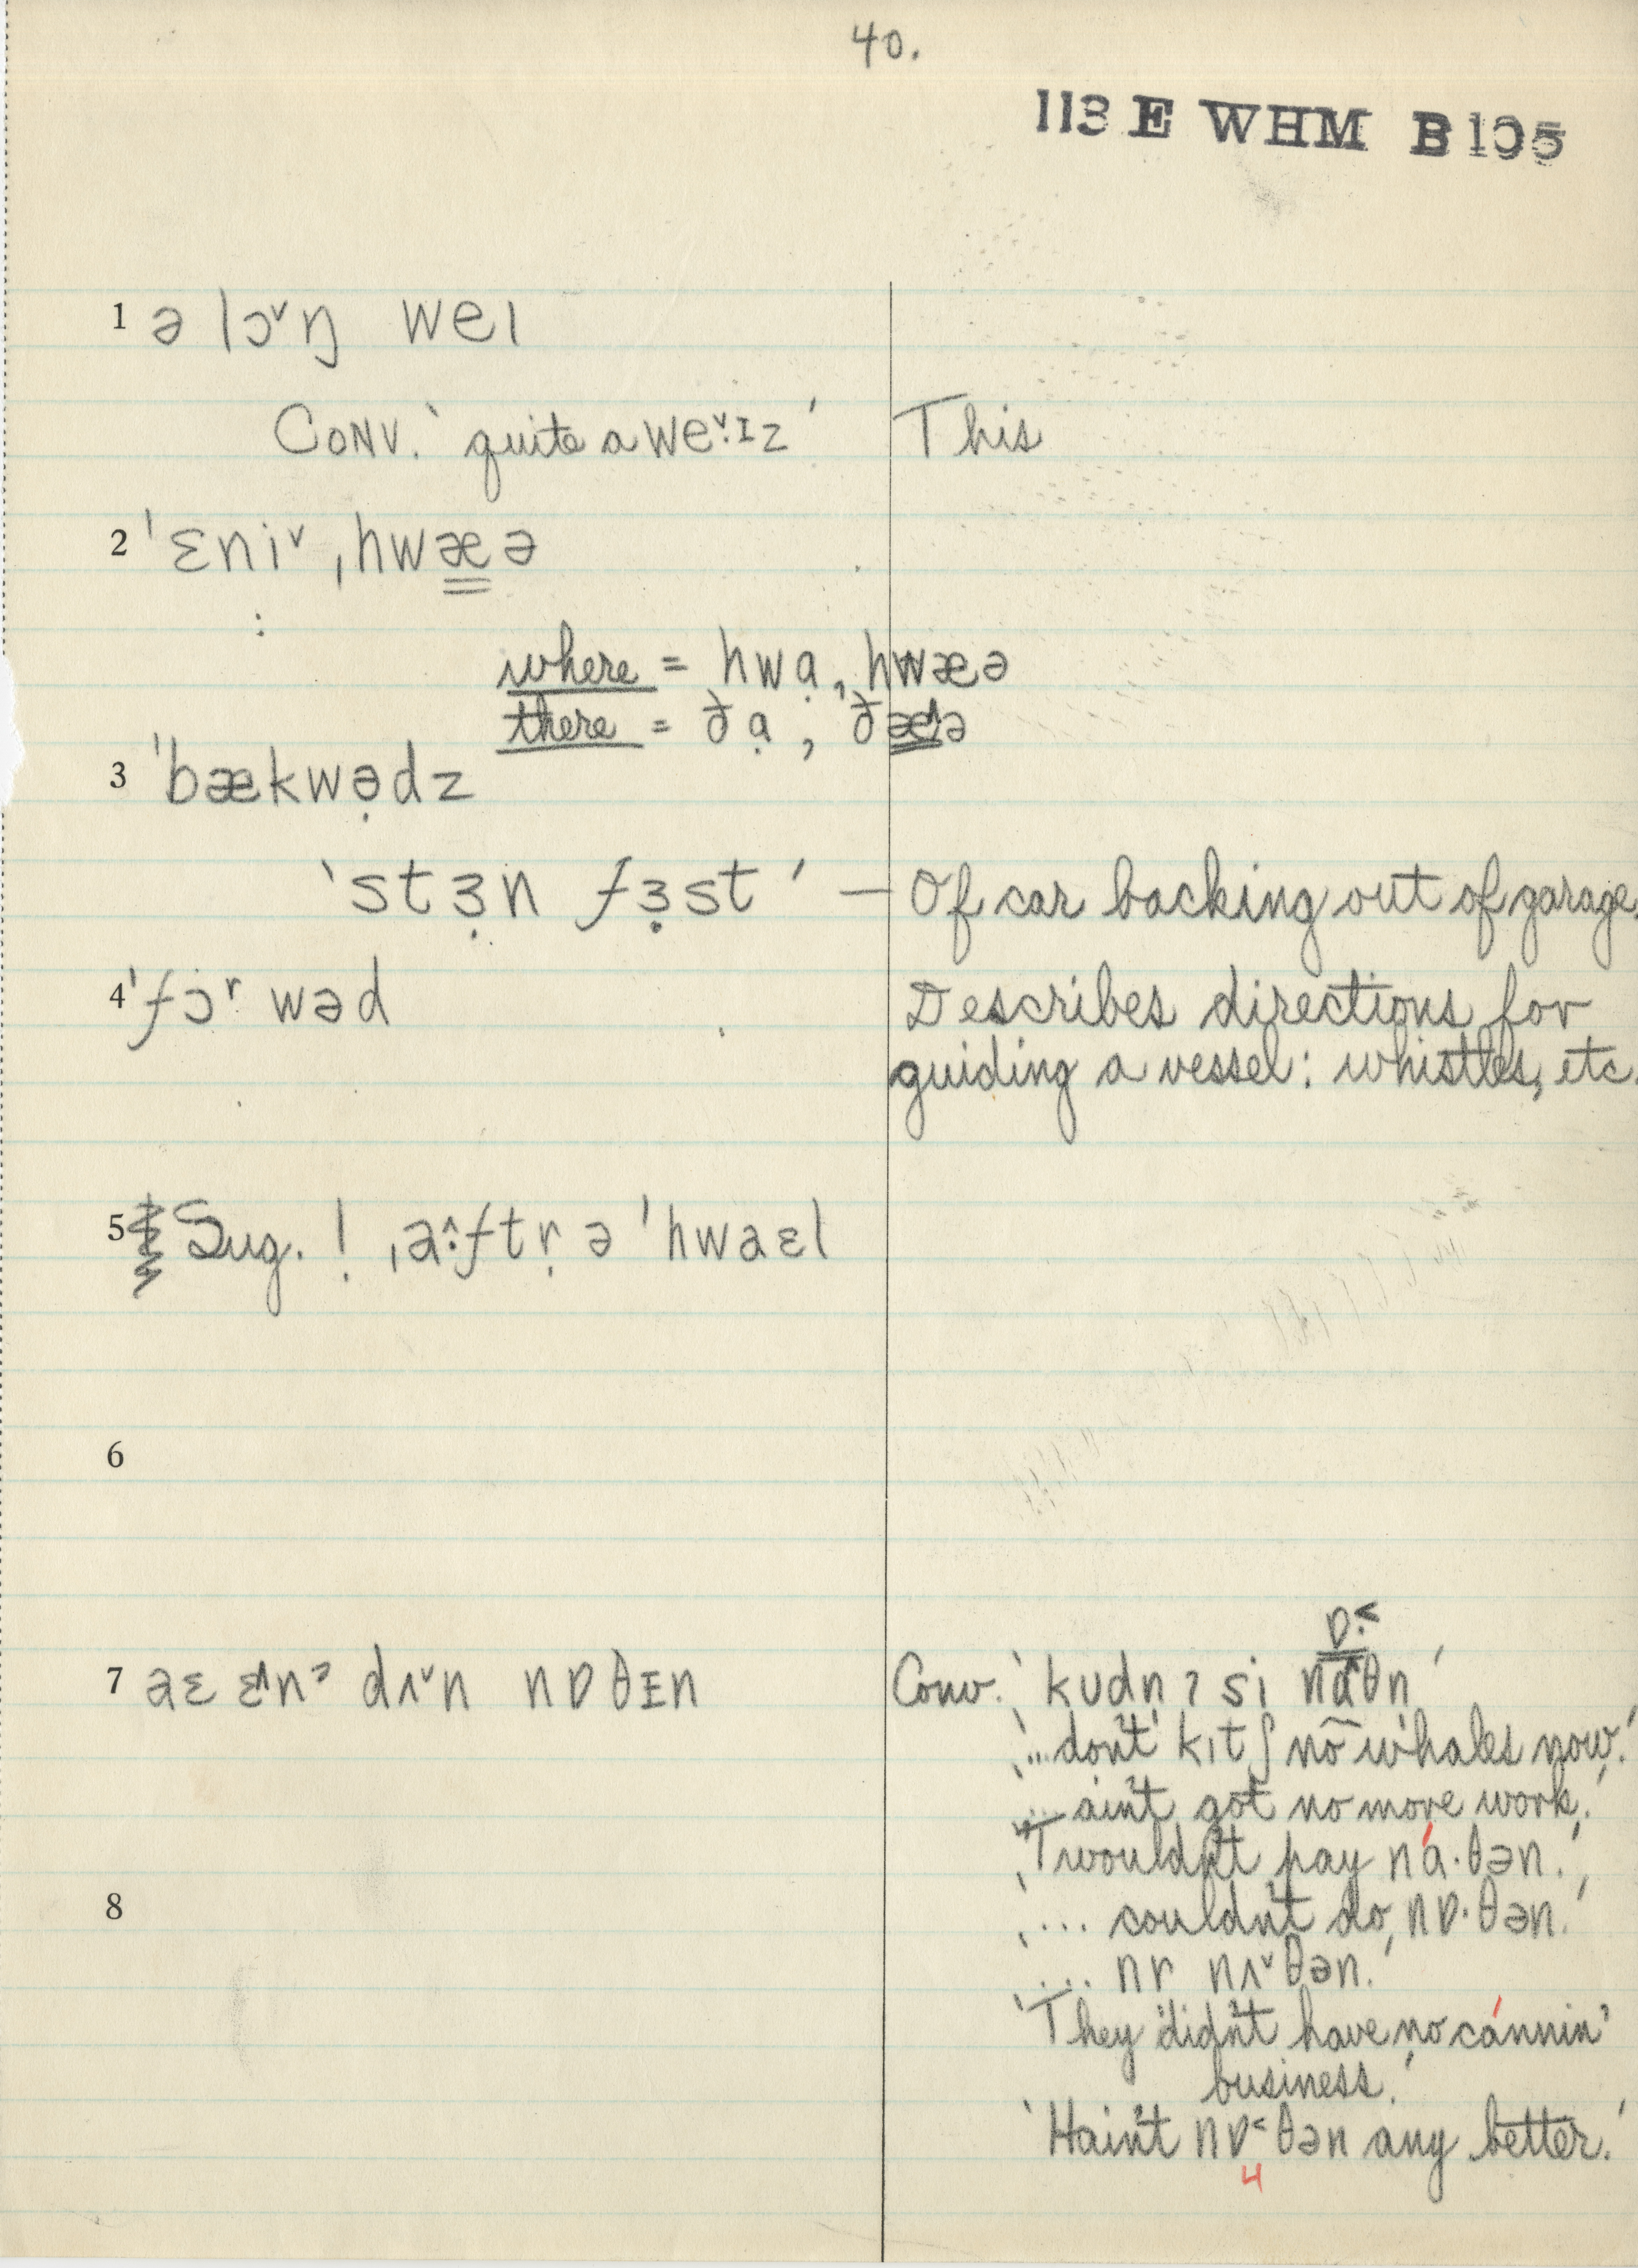 40.
113 E WHM B 105
1 ə lɔ˅ŋ weɪ
CONV. ‘quite a we˅·ɪz’ This
2 ˈɛni˅ ˌhwæə
:
where = hwạ, hwæə
there = ðạ, ðæ^ə
3 ˈbækwə̣dz
‘stɜ̣n fɜ̣st’ — Of car backing out of garage.
4 ˈfɔʳwəd Describes directions for
guiding a vessel: whistles, etc.
5 Sug. ! ˌa^·ftṛ ə ˈhwaɛl
6
7 aɛ ɛ^nˀ dʌ˅n nɒθɪn Conv. ‘kudn ʔ si naθn’
ɒ·˂
‘... don't kɪtʃ no whales now.’
‘... ain't got no more work.’
‘T wouldn't pay ná·θən.’
8 ‘... couldn't do nɒ·θən.’
‘... nr nʌ˅θən.’
‘They didn't have no cánnin'
business.’
‘Hain't nɒ˂θən any better.’
4